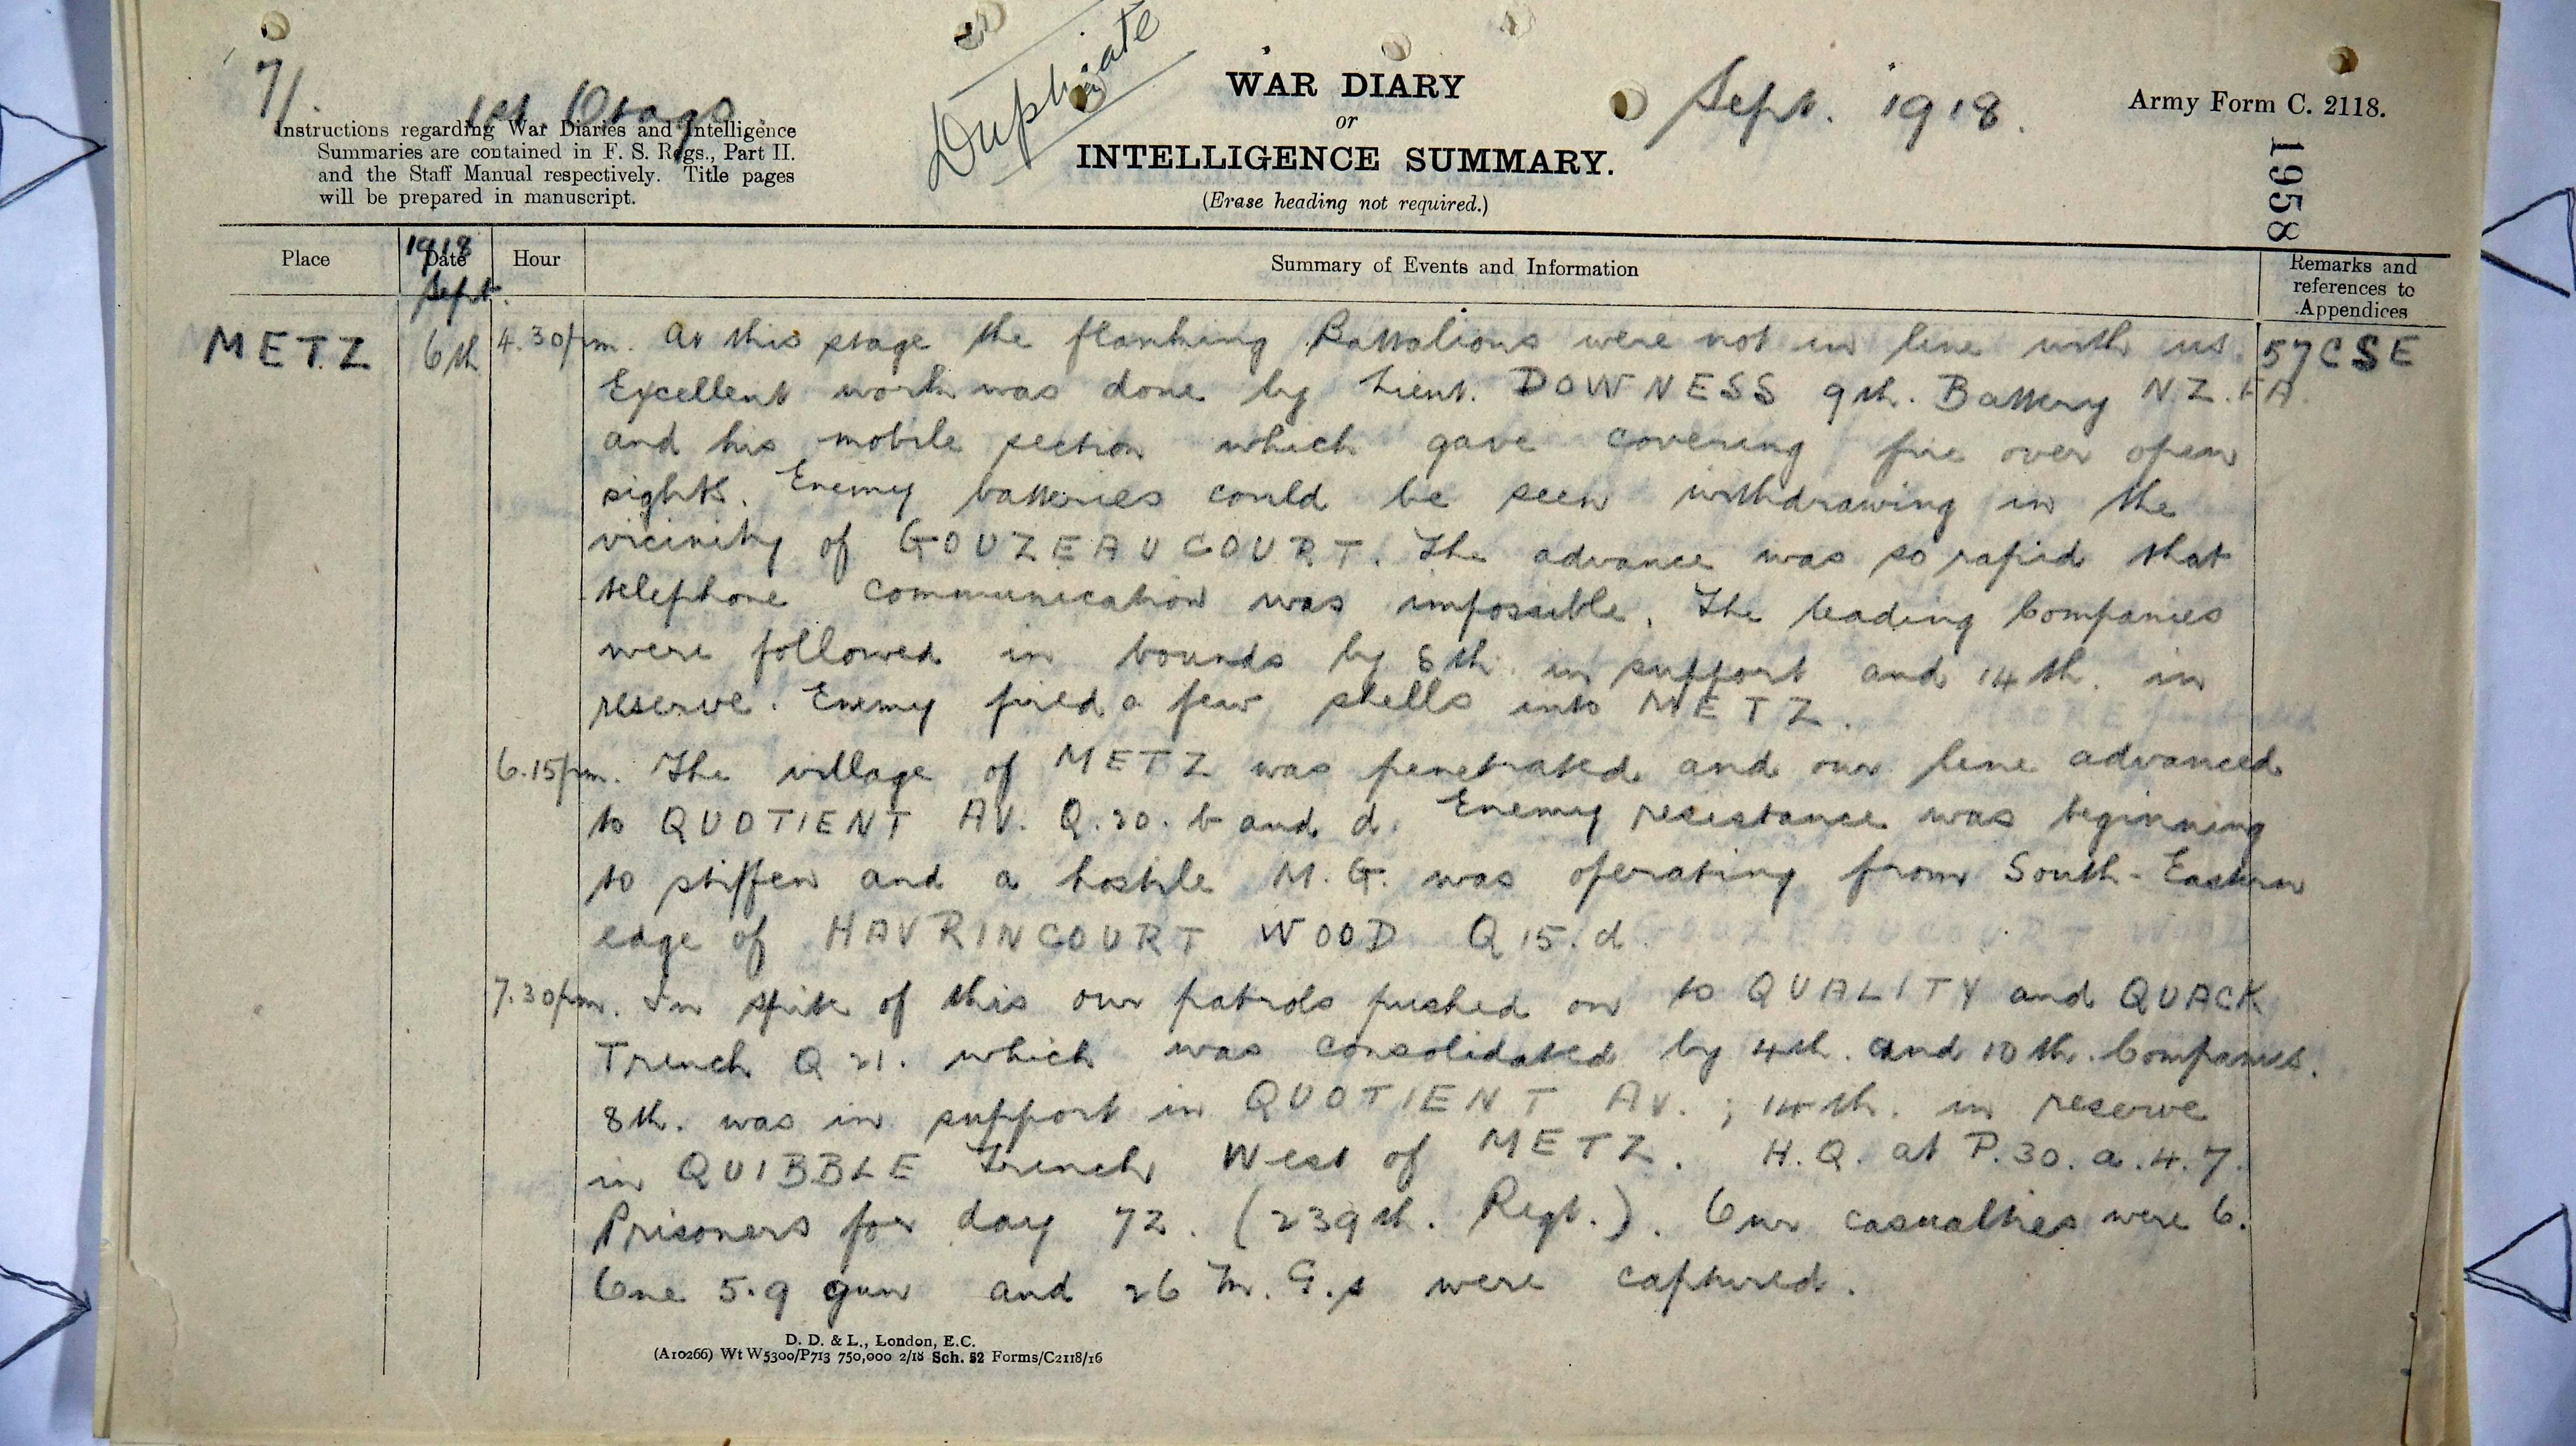 7/.
1st. Otago
Duplicate
WAR DIARY
or
INTELLIGENCE SUMMARY.
(Erase heading not required.)
Sept. 1918.
Army Form C. 2118.
1958
Instructions regarding War Diaries and Intelligence
Summaries are contained in F. S. Regs., Part II.
and the Staff Manual respectively. Title pages
will be prepared in manuscript.
Place
1918
Date
Sept.
Hour
Summary of Events and Information
Remarks and
references to
Appendices
METZ 6th 4.30pm. At this stage the flanking Battalions were not in line with us. 57CSE
Excellent work was done by Lieut. DOWNESS 9th. Battery N.Z.F.A.
and his mobile section which gave covering fire over open
sights. Enemy batteries could be seen withdrawing in the
vicinity of GOUZEAUCOURT. The advance was so rapid that
telephone communication was impossible. The leading Companies
were followed in bounds by 8th. in support and 14th. in
reserve. Enemy fired a few shells into METZ.
6.15pm. The village of METZ was penetrated and our line advanced
to QUOTIENT AV. Q.20. b and d. Enemy resistance was beginning
to stiffen and a hostile M.G. was operating from South-Eastern
edge of HAVRINCOURT WOOD Q 15.d
7.30pm. In spite of this our patrols pushed on to QUALITY and QUACK
Trench Q 21. which was consolidated by 4th. and 10th. Companies.
8th. was in support in QUOTIENT AV. ; 14th. in reserve
in QUIBBLE Trench West of METZ. H.Q. at P.30.a.4.7.
Prisoners for day 72. (239th. Regt.). Our casualties were 6.
One 5.9 gun and 26 M.G.s were captured.
D. D. & L., London, E.C.
(A10266) Wt W5300/P713 750,000 2/18 Sch. 52 Forms/C2118/16